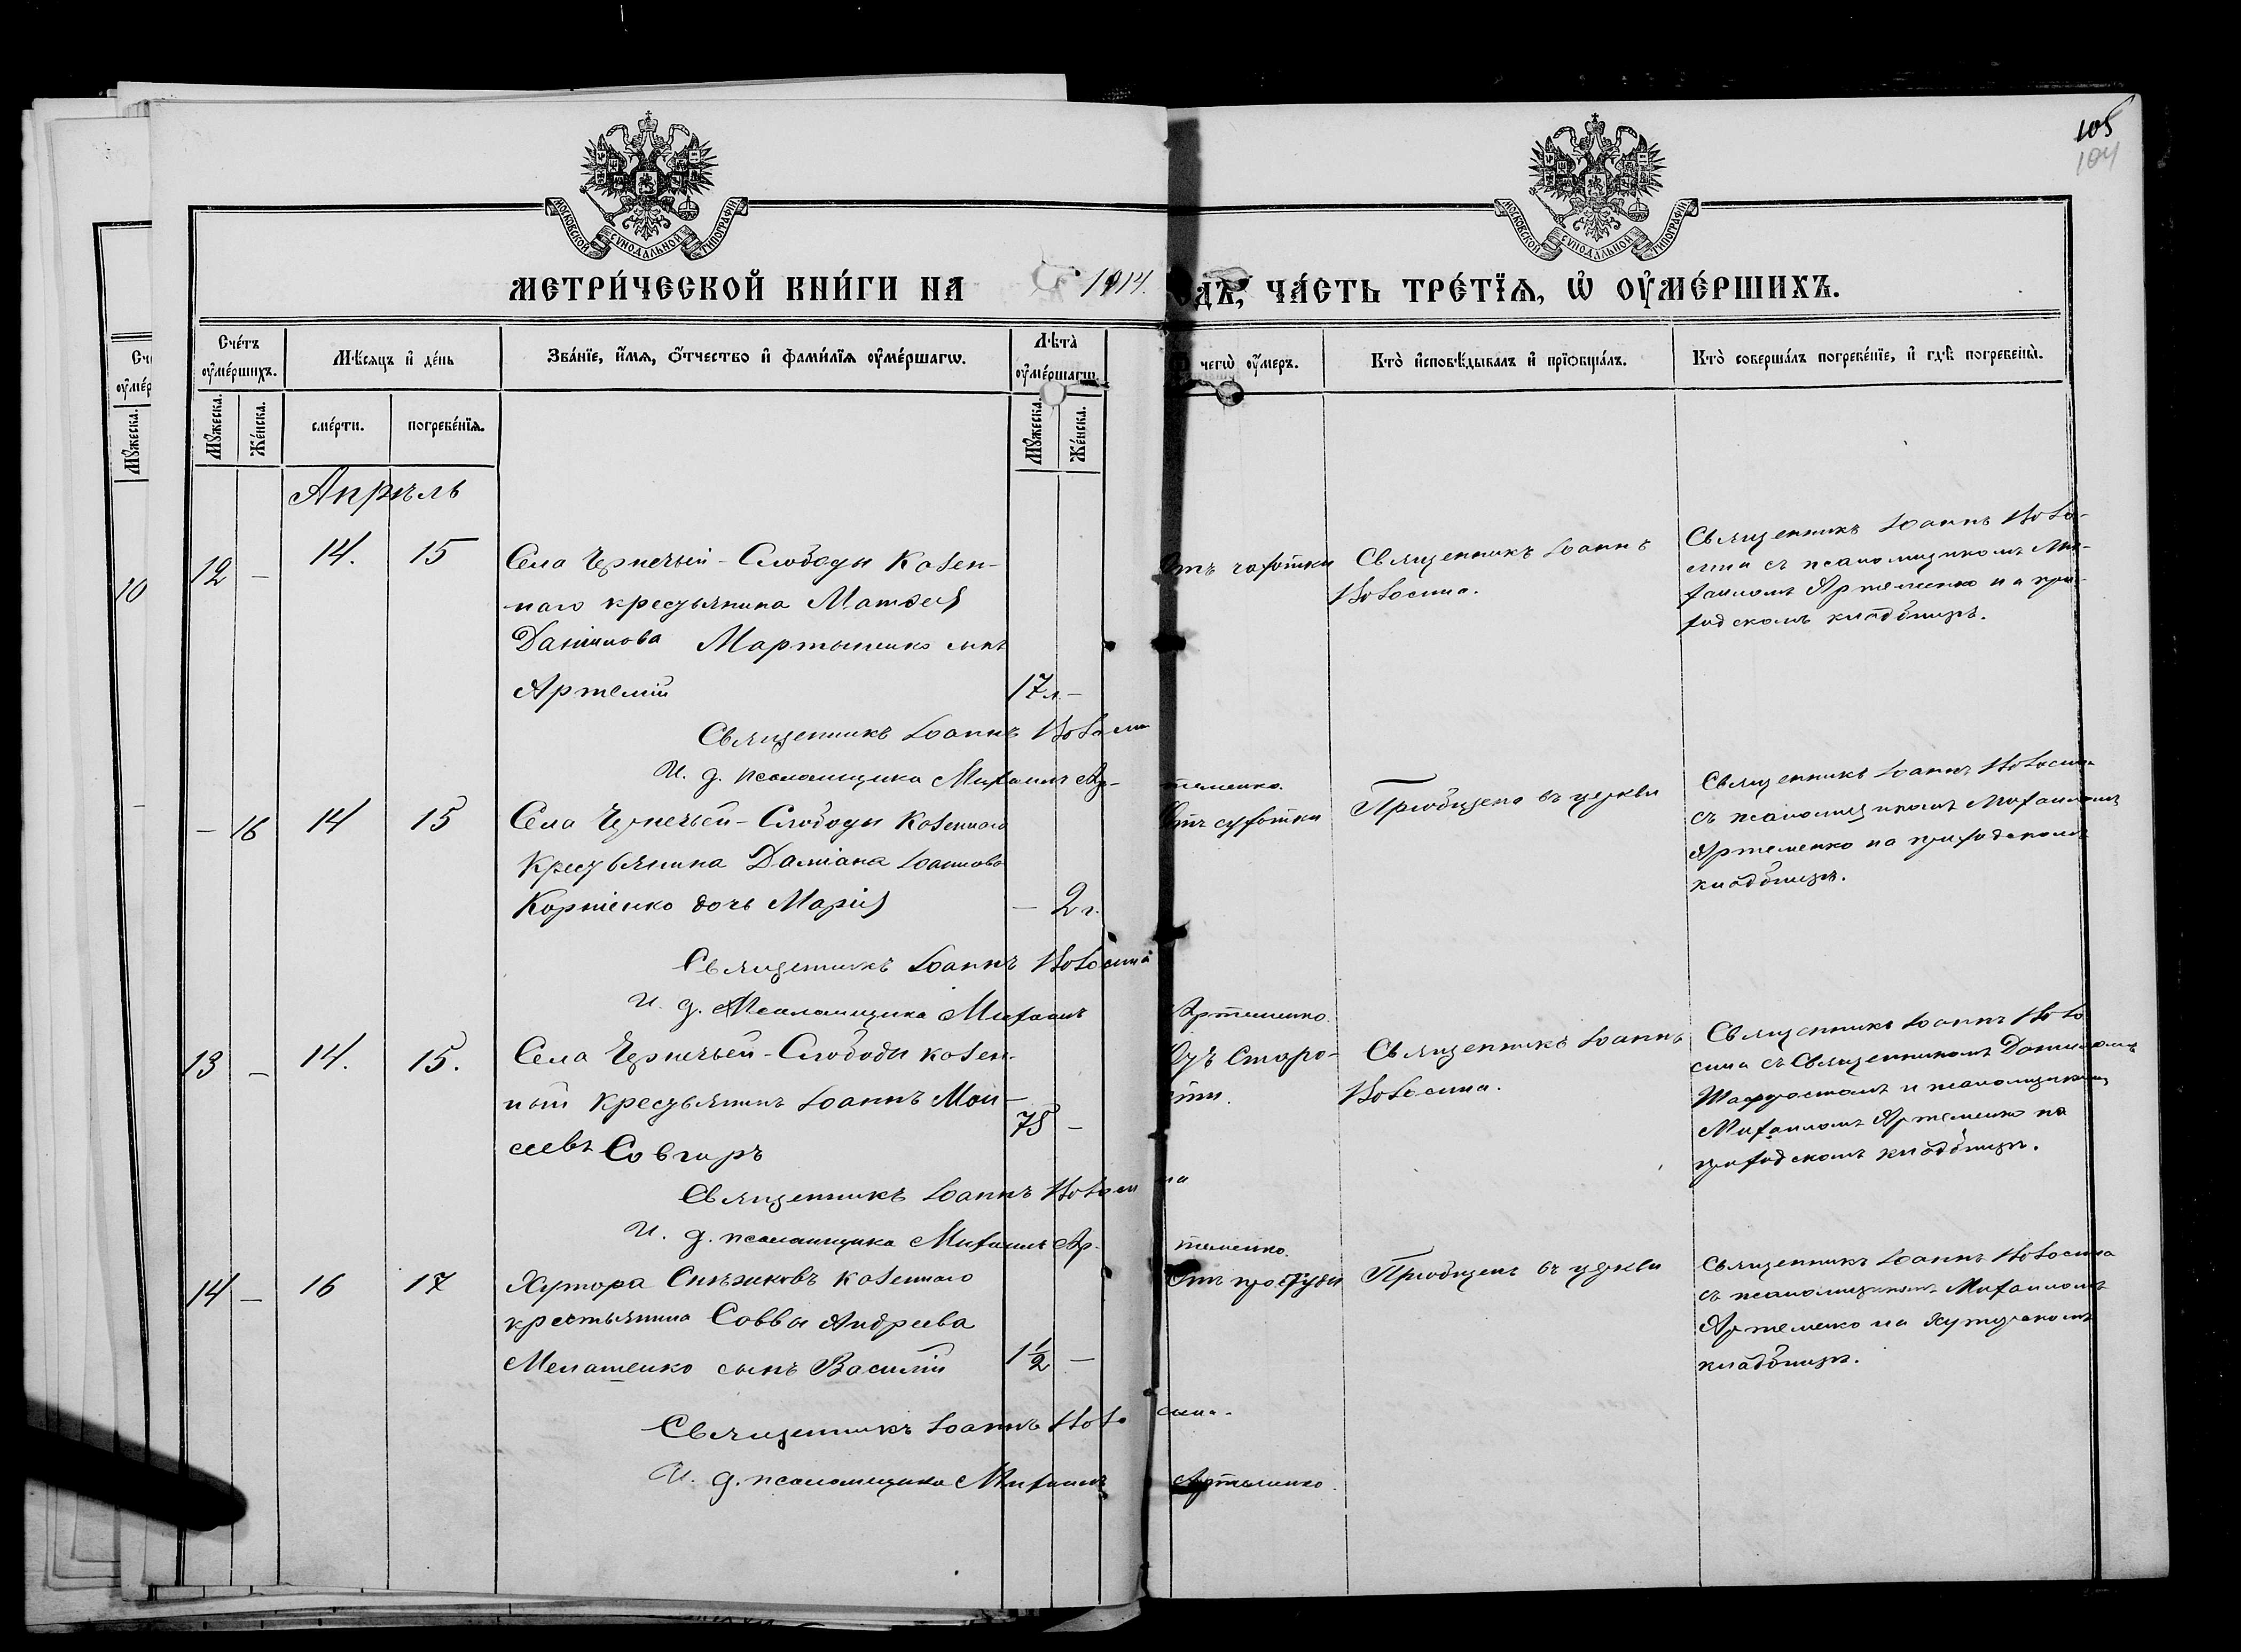 105
104
МОСКОВСКОЙ СѴНОДАЛЬНОЙ ТИПОГРАФІИ
МОСКОВСКОЙ СѴНОДАЛЬНОЙ ТИПОГРАФІИ
МЕТРИ́ЧЕСКОЙ КНИ́ГИ НА 1914.
ОДЪ, ЧА́СТЬ ТРЕ́ТЇѦ, Ѡ ОУ҆МЕ́РШИХЪ.
Сче́тъ оу҆ме́ршихъ.
Мѣ́сяцъ и҆ де́нь
Зва́нїе, и҆́мѧ, ѻ҆́тчество и҆ фами́лїѧ оу҆ме́ршагѡ.
Лѣ̀та̀ оу҆ме́ршагѡ.
чегѡ̀ оу҆́меръ.
Кто̀ и҆сповѣ́дывалъ и҆ прїѡбща́лъ.
Кто̀ соверша́лъ погребе́нїе, и҆ гдѣ̀ погребены̀.
Мꙋ́жеска.
Же́нска.
сме́рти.
погребе́нїѧ.
Мꙋ́жеска.
Же́нска.
Мꙋ́жеска.
10
Апрѣль
12 – 14. 15
Села Чернечьей-Слободы казен-
наго крестьянина Матѳея
Даніилова Мартыненко сынъ
Артемій 17 л. –
Отъ чахотки
Священникъ Іоаннъ
Волосина.
Священникъ Іоаннъ Воло-
сина съ псаломщикомъ Ми-
хаиломъ Артеменко на при-
ходскомъ кладбищѣ.
Священникъ Іоаннъ Волосина
И. д. псаломщика Михаилъ Ар-
теменко.
– 16 14 15
Села Чернечьей-Слободы казеннаго
крестьянина Даміана Іоаннова
Корніенко дочь Марія – 2 г.
Отъ сухотки
Пріобщена въ церкви
Священникъ Іоаннъ Волосина
съ псаломщикомъ Михаиломъ
Артеменко на приходскомъ
кладбищѣ.
Священникъ Іоаннъ Волосина
И. д. Псаломщика Михаилъ
Артеменко.
13 – 14. 15.
Села Чернечьей-Слободы казен-
ный крестьянинъ Іоаннъ Мои-
сеевъ Совгиръ 75 –
Отъ старо-
сти.
Священникъ Іоаннъ
Волосина.
Священникъ Іоаннъ Воло
сина съ Священникомъ
и псаломщикомъ
Михаиломъ Артеменко на
приходскомъ кладбищѣ.
Священникъ Іоаннъ Волоси
на
И. д. псаломщика Михаилъ Ар-
теменко.
14 – 16 17
Хутора Снѣжковъ казеннаго
крестьянина Саввы Андреева
Мелашенко сынъ Василій 1½ –
Отъ простуды
Пріобщенъ въ церкви
Священникъ Іоаннъ Волосина
съ псаломщикомъ Михаиломъ
Артеменко на хуторскомъ
кладбищѣ.
Священникъ Іоаннъ Воло
сина.
И. д. псаломщика Михаилъ
Артеменко.